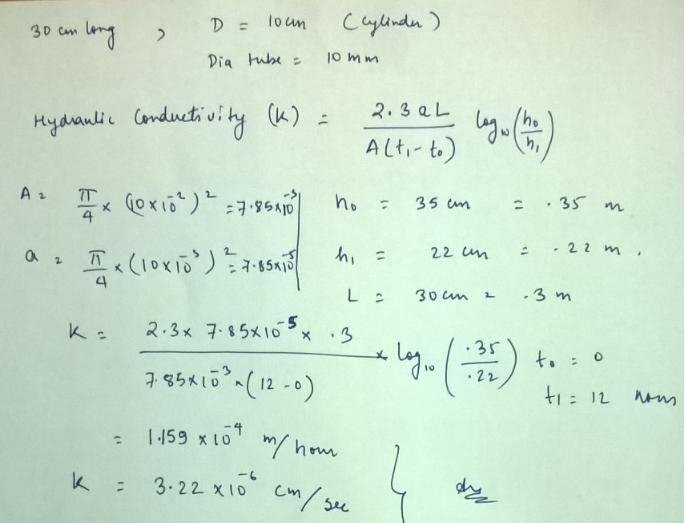 30 cm long , D = 10 cm (cylinder)
Dia tube = 10 mm
Hydraulic Conductivity (K) = 2.3 a L / A(t₁-t₀) log₁₀ (h₀/h₁)
A = π/4 × (10×10⁻²)² = 7.85×10⁻³
h₀ = 35 cm = .35 m
a = π/4 × (10×10⁻³)² = 7.85×10⁻⁵
h₁ = 22 cm = .22 m .
L = 30 cm = .3 m
K = 2.3 × 7.85×10⁻⁵ × .3 / 7.85×10⁻³ × (12-0) × log₁₀ (.35/.22)
t₀ = 0
t₁ = 12 hours
= 1.159 × 10⁻⁴ m/hour
K = 3.22 × 10⁻⁶ cm/sec